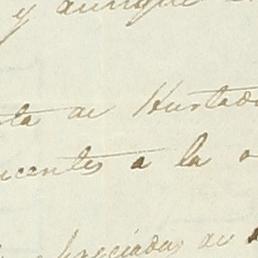 y aunque
ta de Hurtado
centes a la
preciadas de